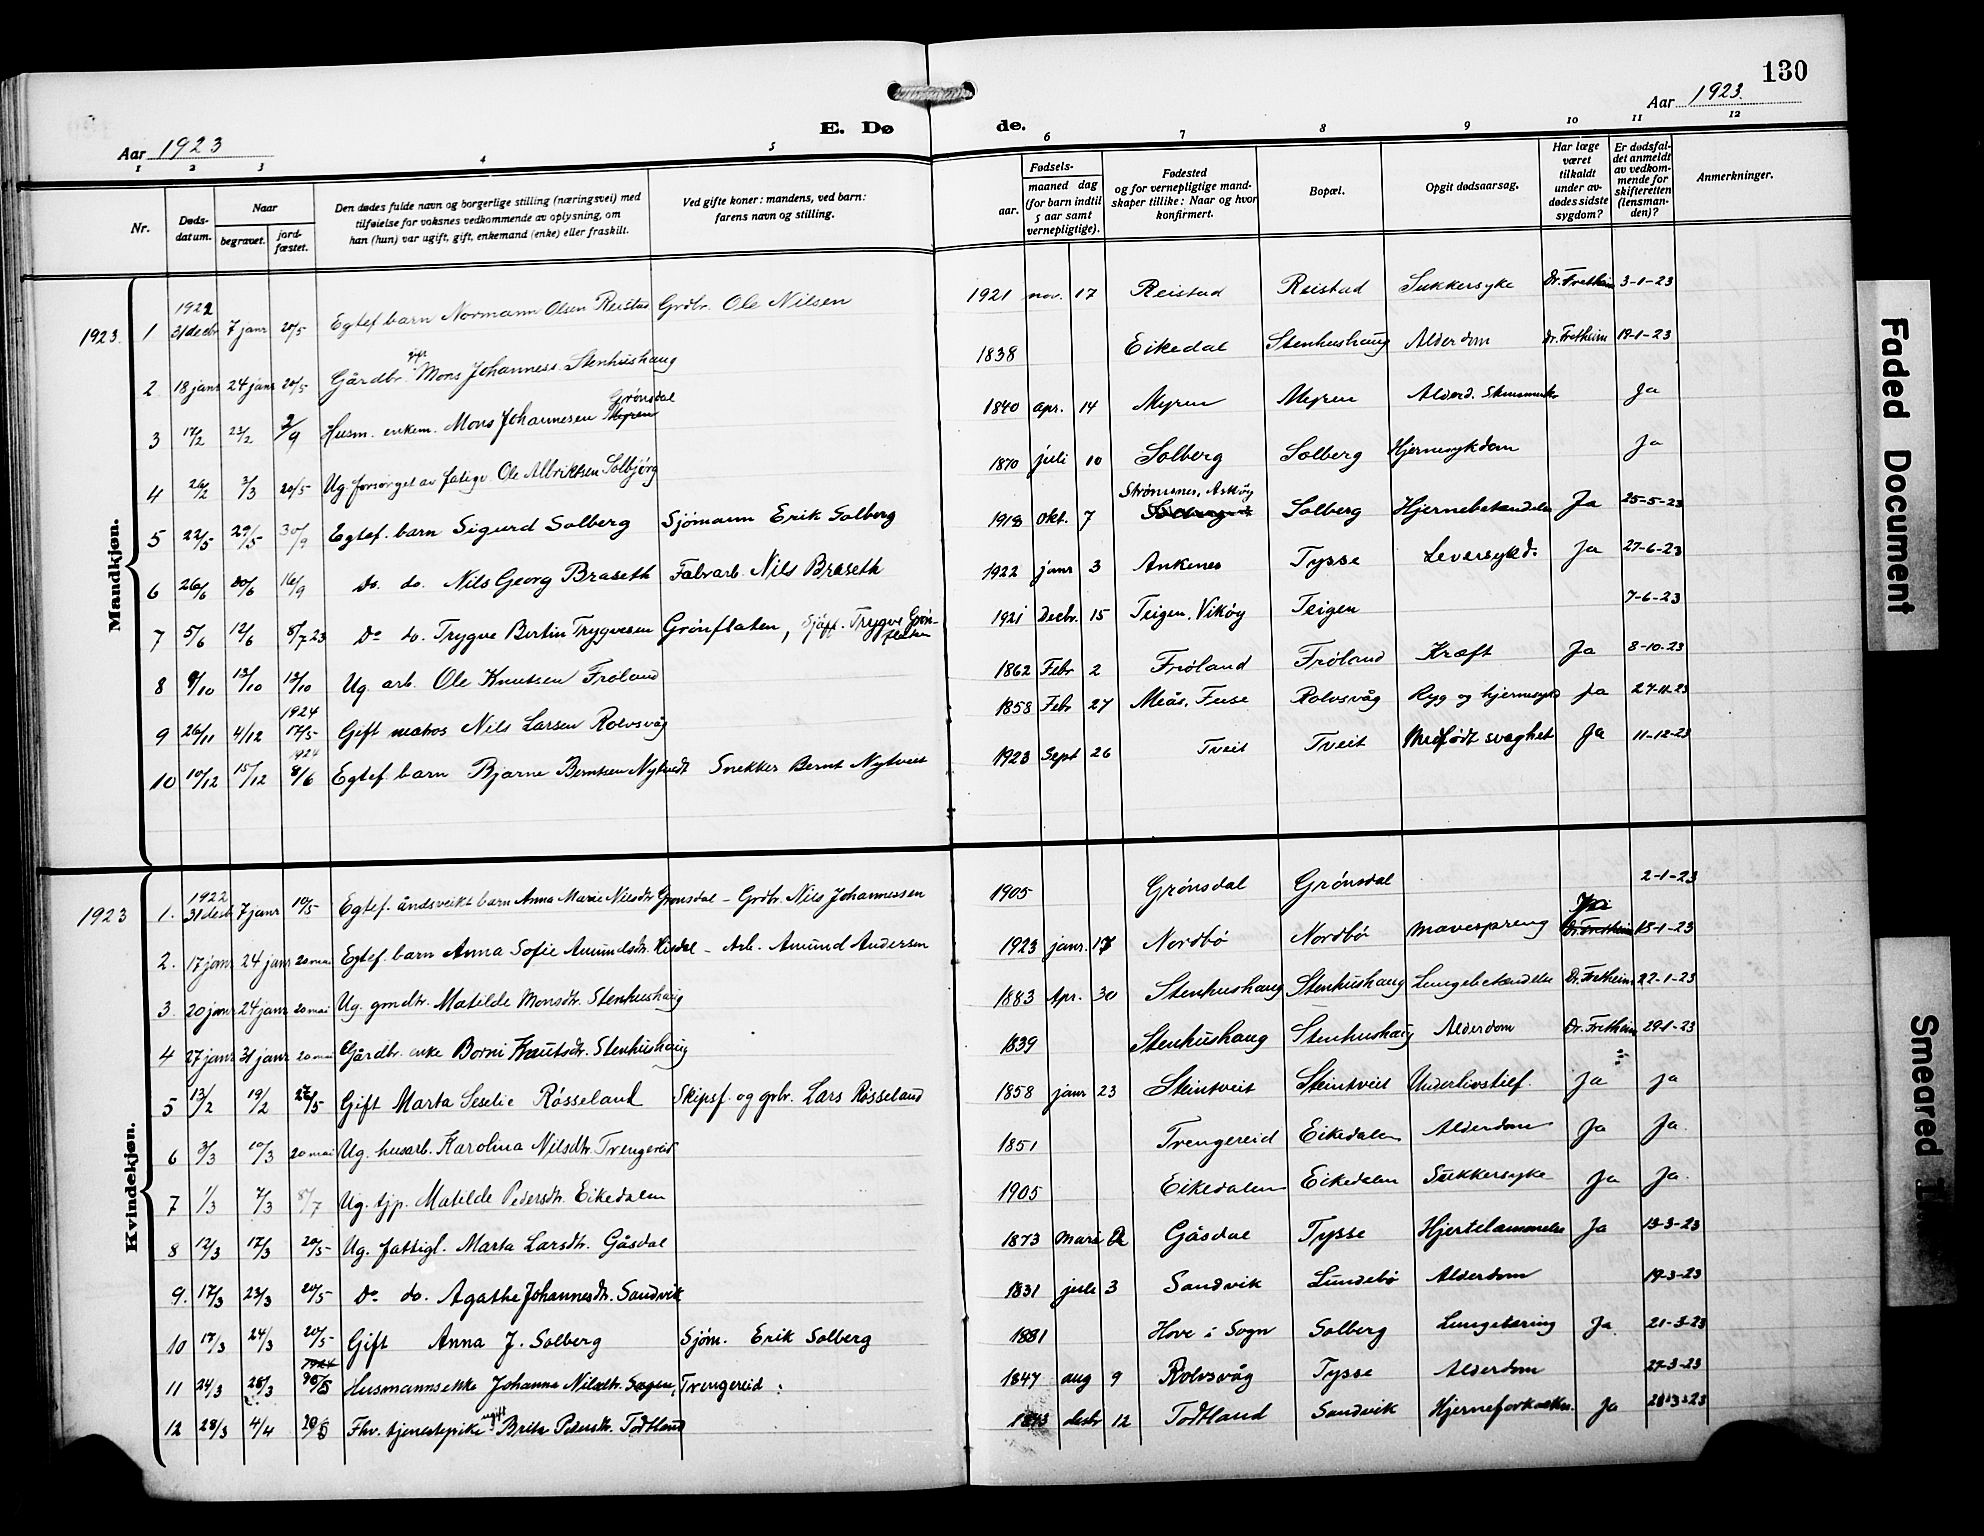 130
Aar 1923
E. Dø de.
Aar 1923.
1 2 3 4 5 6 7 8 9 10 11 12
Nr.
Døds-datum.
Naar
begravet.
jord-fæstet.
Den dødes fulde navn og borgerlige stilling (næringsvei) med tilføielse for voksnes vedkommende av oplysning, om han (hun) var ugift, gift, enkemand (enke) eller fraskilt.
Ved gifte koner: mandens, ved barn: farens navn og stilling.
Fødsels-
aar.
maaned dag (for barn indtil 5 aar samt vernepligtige).
Fødested og for vernepligtige mandskaper tillike: Naar og hvor konfirmert.
Bopæl.
Opgit dødsaarsag.
Har læge været tilkaldt under avdødes sidste sygdom?
Er dødsfaldet anmeldt av vedkommende for skifteretten (lensmanden)?
Anmerkninger.
Mandkjøn.
1923. 1 1922 31 decbr 7 janr 20/5 Egtef barn Normann Olsen Reistad Grdbr. Ole Nilsen 1921 nov. 17 Reistad Reistad Sukkersyke Dr. Fretheim 3-1-23
2 18 janr 24 janr 20/5 Gårdbr. Mons Johanness. Stenhushaug 1838 Eikedal Stenhushaug Alderdom Dr. Fretheim 19-1-23
3 17/2 23/2 2/9 Husm. enkem. Mons Johannesen Myren Grønsdal 1840 apr. 14 Myren Myren Alderd. Ja
4 26/2 3/3 20/5 Ug. forsørget av fatigv. Ole Albriktsen Solbjørg 1870 juli 10 Solberg Solberg Hjernesykdom Ja
5 22/5 29/5 30/9 Egtef. barn Sigurd Solberg Sjömann Erik Solberg 1918 okt. 7 Strømsnes, Askøy Solberg Hjernebetændelse Ja 25-5-23
6 26/6 30/6 16/9 Do. do. Nils Georg Braseth Fabrarb. Nils Braseth 1922 janr 3 Ankenes Tysse Leversykd. Ja 27-6-23
7 5/6 12/6 8/7 23 Do do. Trygve Bertin Trygvesen Grønflaten, Sjåff. Trygve Grønflaten 1921 Decbr. 15 Teigen, Vikøy Teigen 7-6-23
8 8/10 13/10 13/10 Ug. arb. Ole Knutsen Frøland 1862 Febr 2 Frøland Frøland Kræft Ja 8-10-23
9 26/11 4/12 1924 17/5 Gift matros Nils Larsen Rolvsvåg 1858 Febr 27 Meås, Fuse Rolvsvåg Ryg og hjernesyke Ja 27-11-23
10 10/12 15/12 1924 8/6 Egtef barn Bjarne Berntsen Nytveit Snekker Bernt Nytveit 1923 Sept 26 Tveit Tveit Medfødt svaghet Ja 11-12-23
Kvindekjøn.
1923 1. 1922 31 decbr 7 janr 10/5 Egtef. åndsveikt barn Anna Marie Nilsdtr Grønsdal – Grdbr. Nils Johannessen 1905 Grønsdal Grønsdal 2-1-23
2. 17 janr 24 janr 20 mai Egtef barn Anna Sofie Amundsdtr. Hisdal – Arb. Amund Andersen 1923 janr. 17 Nordbø Nordbø mavespreng Ja Dr. Fretheim 15-1-23
3. 20 janr 24 janr 20 mai Ug. gmdtr. Matilde Monsdtr. Stenhushaug 1883 Apr. 30 Stenhushaug Stenhushaug Lungebetændelse Dr. Fretheim 22-1-23
4 27 janr 31 janr 20 mai Gårdbr. enke Borni Knutsdtr. Stenhushaug 1839 Stenhushaug Stenhushaug Alderdom Dr. Fretheim 29-1-23
5 13/2 19/2 27/5 Gift Marta Seselie Røsseland Skipsf. og grbr. Lars Røsseland 1858 janr 23 Steintveit Steintveit Underlivstilf. Ja ja
6 3/3 10/3 20 mai Ug. husarb. Karolina Nilsdtr. Trengereid 1851 Trengereid Eikedalen Alderdom Ja Ja.
7 1/3 7/3 8/7 Ug. tjp. Matilde Pedersdtr. Eikedalen 1905 Eikedalen Eikedalen Sukkersyke Ja Ja.
8 12/3 17/3 20/5 Ug. fattigl. Marta Larsdtr. Gåsdal 1873 mars Gåsdal Tysse Hjertelammelse Ja 13-3-23
9. 17/3 23/3 20/5 Do do. Agathe Johannesdtr. Sandvik 1831 juli 3 Sandvik Lundebø Alderdom 19-3-23
10 17/3 24/3 20/5 Gift Anna J. Solberg Sjøm. Erik Solberg 1881 Hove i Sogn Solberg Lungetæring Ja 21-3-23
11 24/3 28/3 1924 Husmannsekke Johanna Nilsdtr. Sagen, Trengereid 1847 aug 9 Rolvsvåg Tysse Alderdom 27-3-23
12 28/3 4/4 Fhv. tjenestepike ugift Brita Pedersdtr. Todtland decbr 12 Todtland Sandvik Ja 28-3-23
Faded Document
Smeared